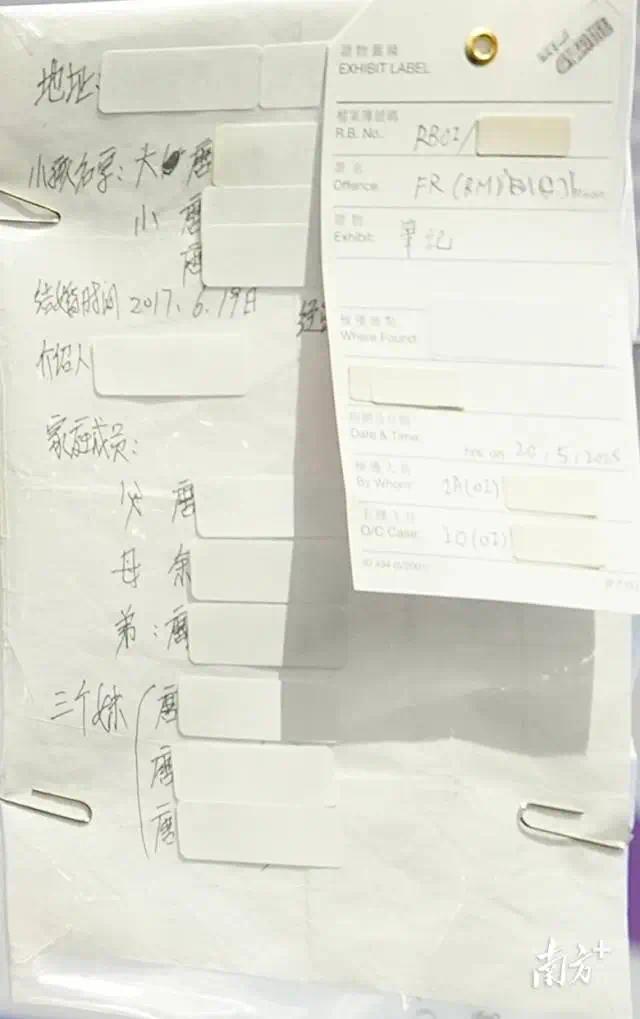 地址:
小孩名字: 大 唐
小 唐
唐
结婚时间 2017.6.19日
介绍人
家庭成员:
父 唐
母 余
弟: 唐
三个妹 唐
唐
唐
證物圖籤
EXHIBIT LABEL
檔案簿號碼
R.B. No.: RB02/
罪名
Offence:
證物
Exhibit: 筆記
檢獲地點
Where Found:
Date & Time: hrs. on 20.5.2025
檢獲人員
By Whom:
O/C Case: IO(02)
南方+